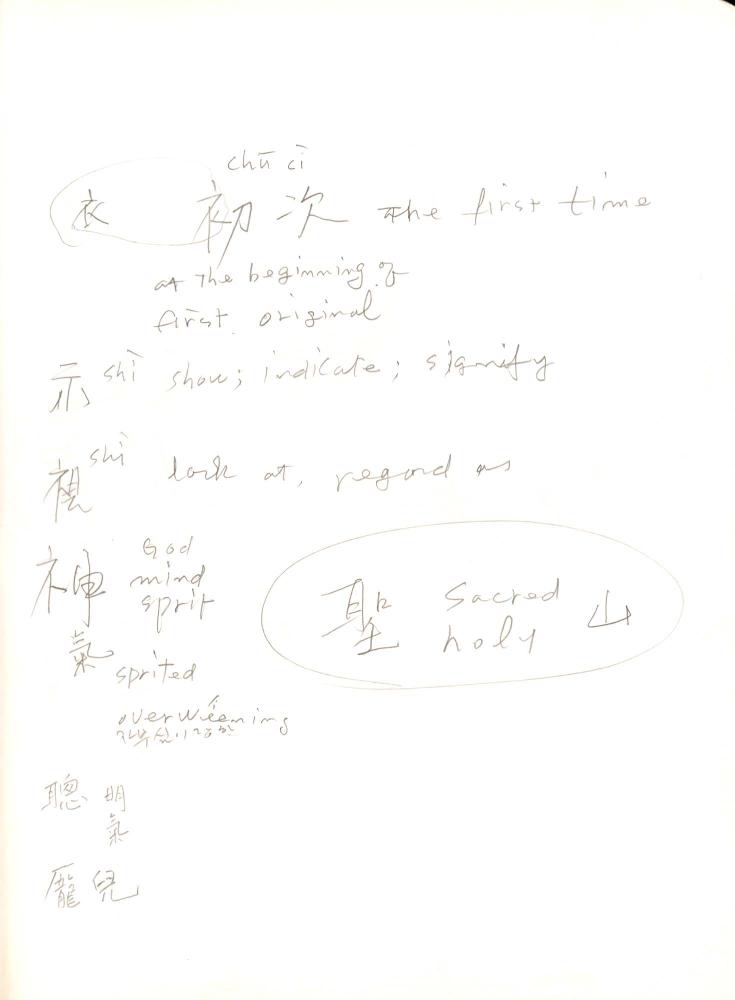 chū cì
衣 初次 The first time
at the beginning of
first. original
示 shì show; indicate; signify
視 shì look at, regard as
神 God
mind
sprit
氣 sprited
overweening
聖 Sacred 山
holy
聰明
氣
龐兒